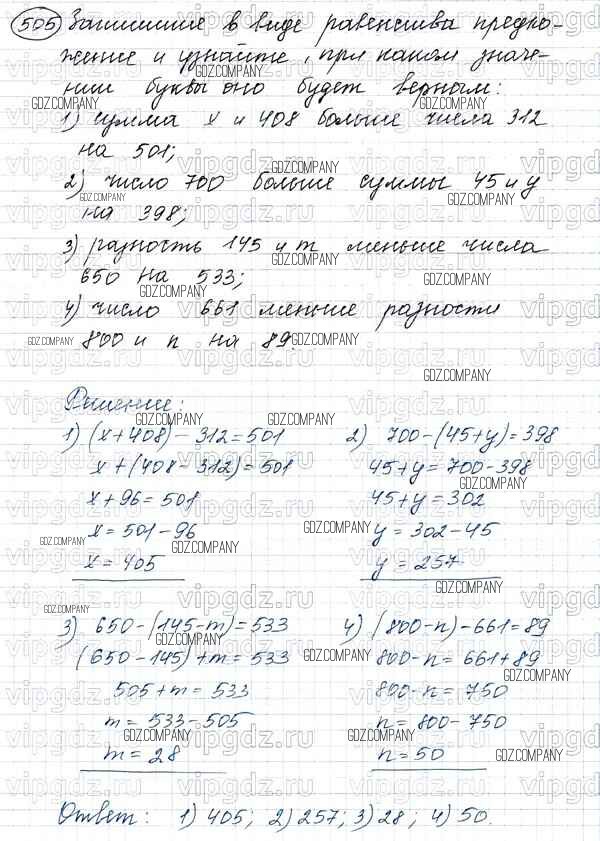 505 Запишите в виде равенства предло-
жение и узнайте, при каком значе-
нии буквы оно будет верным:
1) сумма x и 408 больше числа 312
на 501;
2) число 700 больше суммы 45 и y
на 398;
3) разность 145 и m меньше числа
650 на 533;
4) число 661 меньше разности
800 и n на 89.
Решение:
1) (x+408)-312=501
x+(408-312)=501
x+96=501
x=501-96
x=405
2) 700-(45+y)=398
45+y=700-398
45+y=302
y=302-45
y=257
3) 650-(145-m)=533
(650-145)+m=533
505+m=533
m=533-505
m=28
4) (800-n)-661=89
800-n=661+89
800-n=750
n=800-750
n=50
Ответ: 1) 405; 2) 257; 3) 28; 4) 50.
GDZ.COMPANY
vipgdz.ru